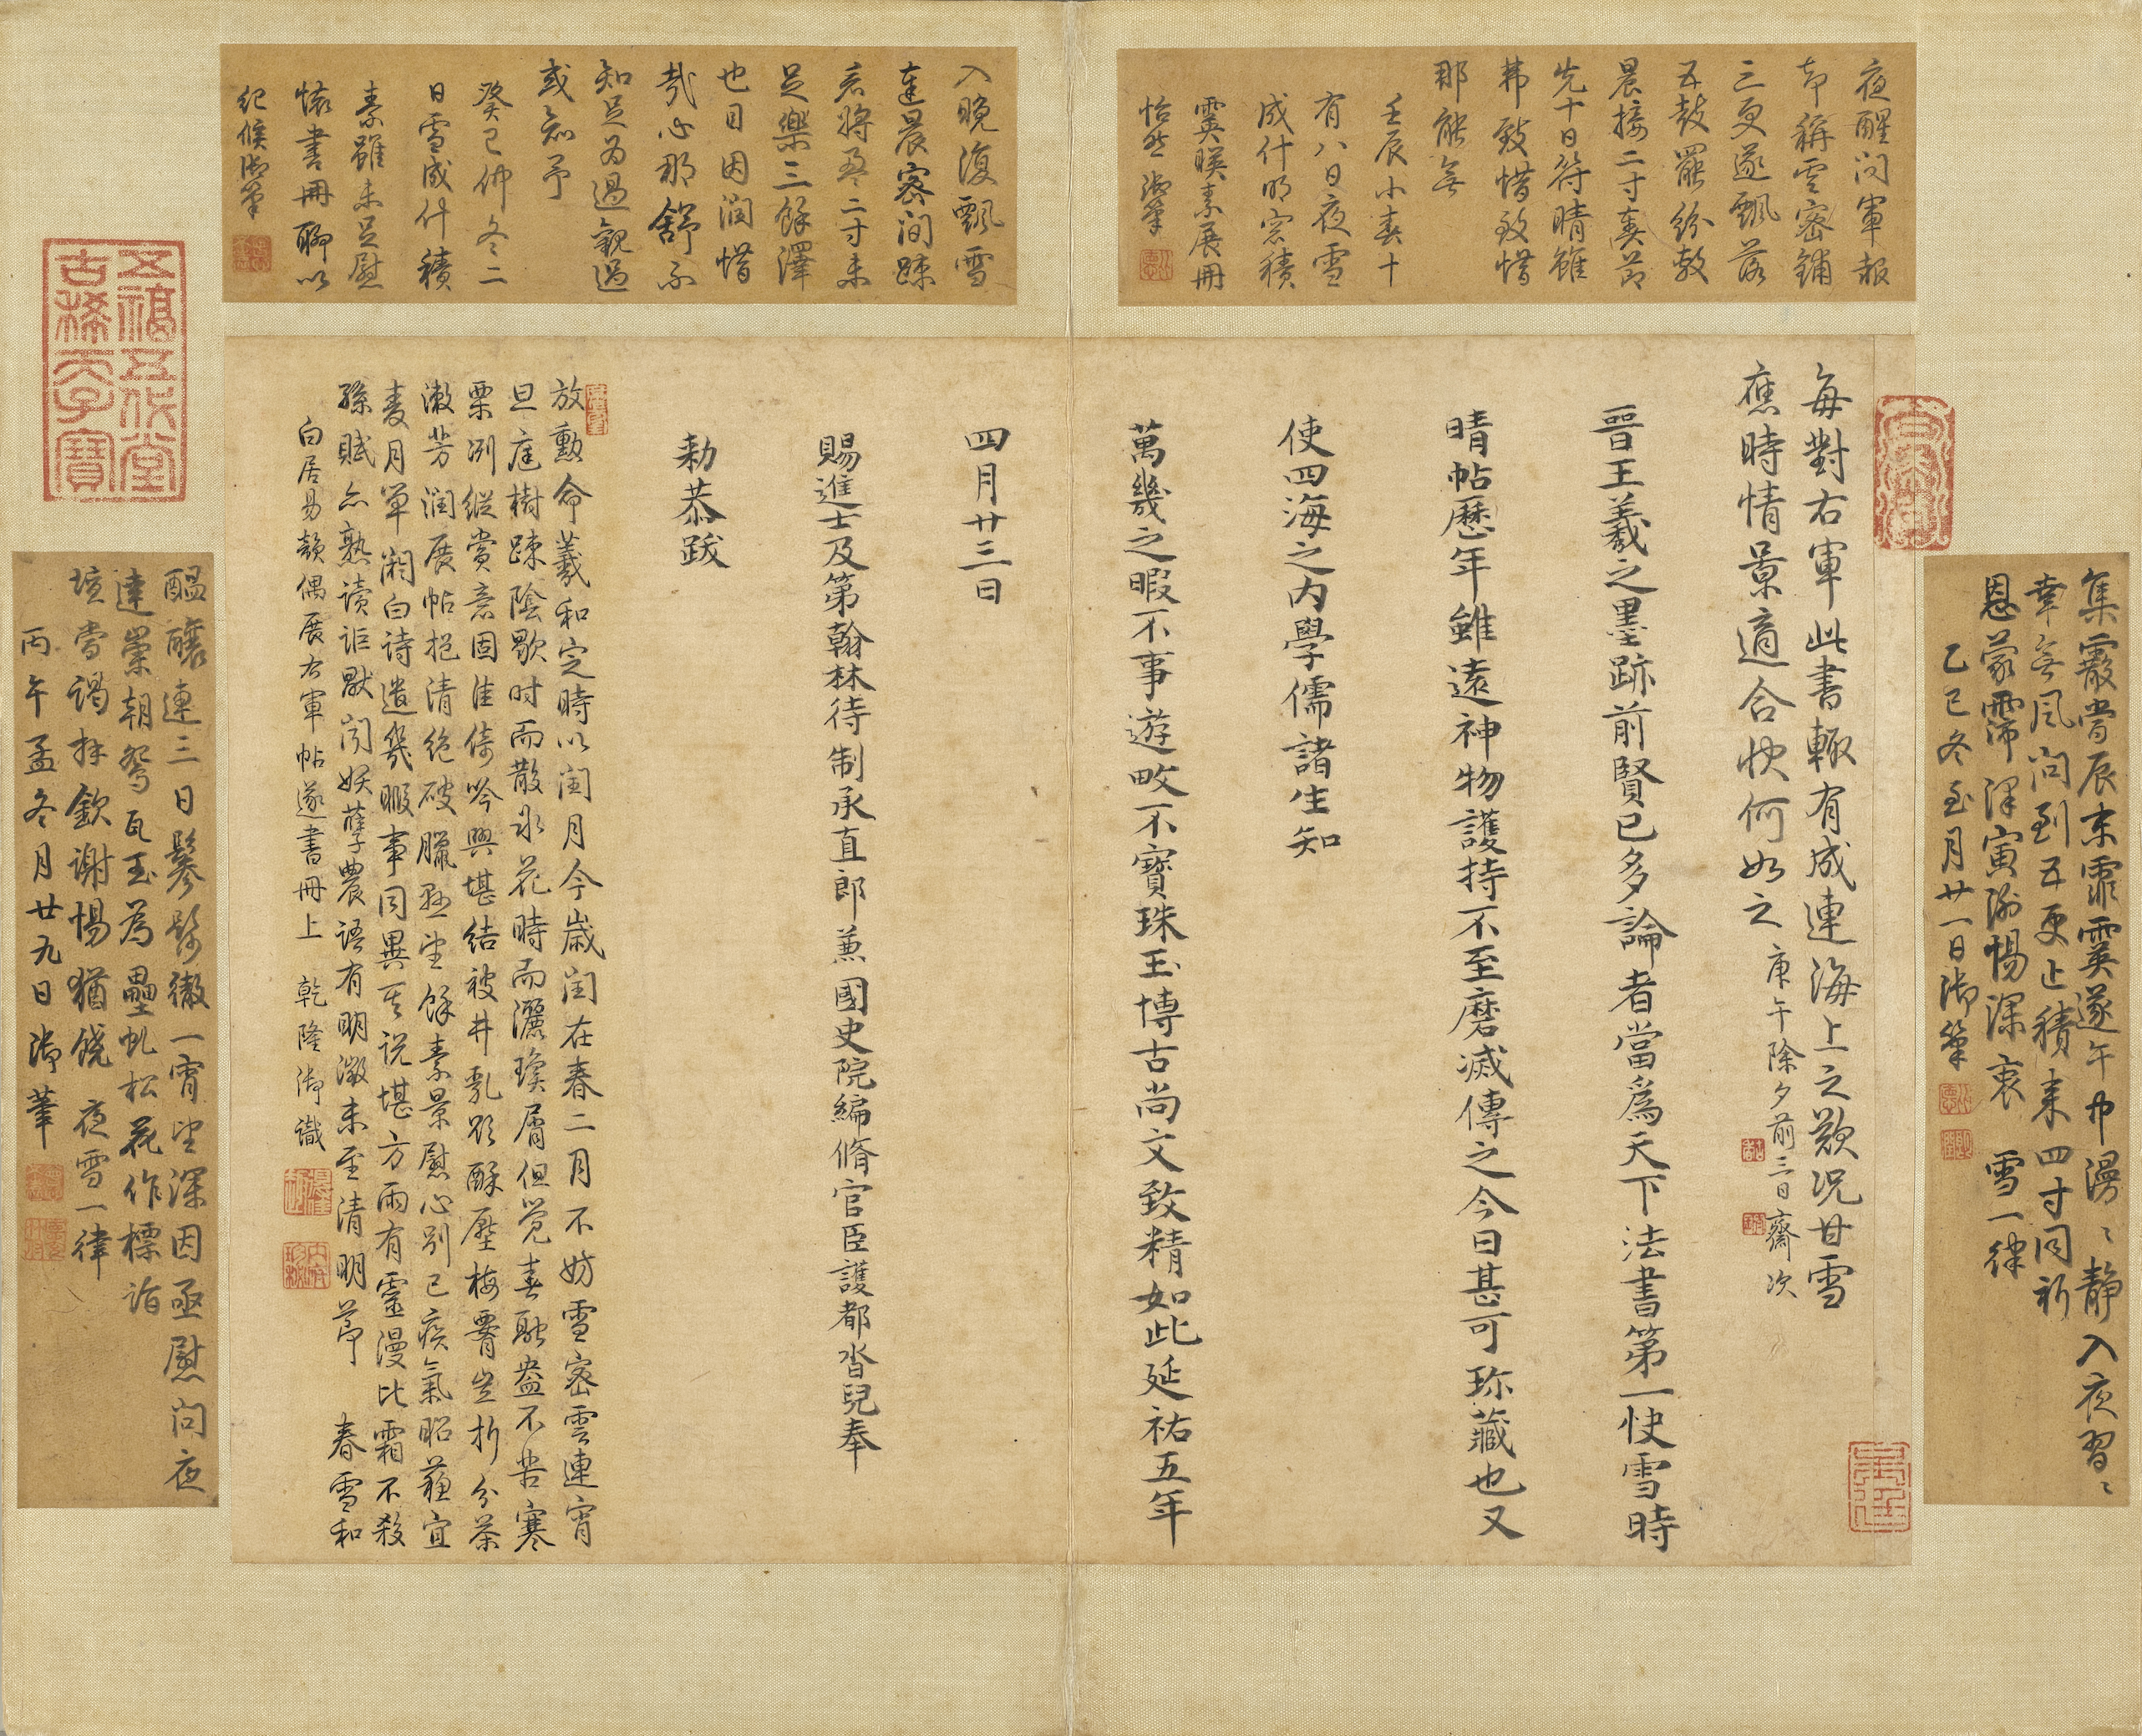 夜醒問軍報
却稱雪密鋪
三更遂飄落
五鼓罷紛敷
晨接二寸奏節
先十日符晴雖
弗致惜致惜
那能無
壬辰小春十
有八日夜雪
成什明窓積
霙暎素展冊
怡然御筆
入晚復飄雪
達晨密間踈
若將盈二寸未
足樂三餘澤
也因潤惜
哉心那舒不
知足為過觀過
或知予
癸巳仲冬二
日雪成什積
素雖未足慰
懷書冊聊以
紀候御筆
集霰當辰末霏霙遂午中漫〻静入夜習〻
幸無風問到五更止積來四寸同祈
恩蒙霈澤寅謝惕深衷 雪一律
乙巳冬至月廿一日御筆
每對右軍此書輒有成連海上之歎況甘雪
應時情景適合快何如之 庚午除夕前三日齋次
晉王羲之墨跡前賢已多論者當爲天下法書第一快雪時
晴帖歷年雖遠神物護持不至磨滅傳之今日甚可珎藏也又
使四海之内學儒諸生知
萬幾之暇不事遊畋不寶珠玉博古尚文致精如此延祐五年
四月廿三日
賜進士及第翰林待制承直郎兼國史院編脩官臣護都沓兒奉
勑恭跋
放勲命羲和定時以閏月今歲閏在春二月不妨雪密雲連宵
旦庭樹踈陰歇时而散氷花時而灑瓊屑但覺春融盎不苦寒
栗冽縱賞意固佳倚吟興堪結被井乳欲酥壓梅脣豈折分茶
漱芳潤展帖挹清絶破臘
望餘素景慰心別已疾氣昭蘓宜
麦月單閼白诗遣幾暇事同異其说堪方雨有靈漫比霜不殺
孫賦亦熟读詎猒闵妖孽農语有明徵未至清明節 春雪和
白居易韻偶展右軍帖遂書冊上 乾隆御識
醖釀連三日鬖髿徹一宵望深因亟慰問夜
達崇朝鴛瓦玉為壘虬松花作標詣
壇當謁拜欽谢惕猶饒 夜雪一律
丙午孟冬月廿九日御筆
五福五代堂
古稀天子寶